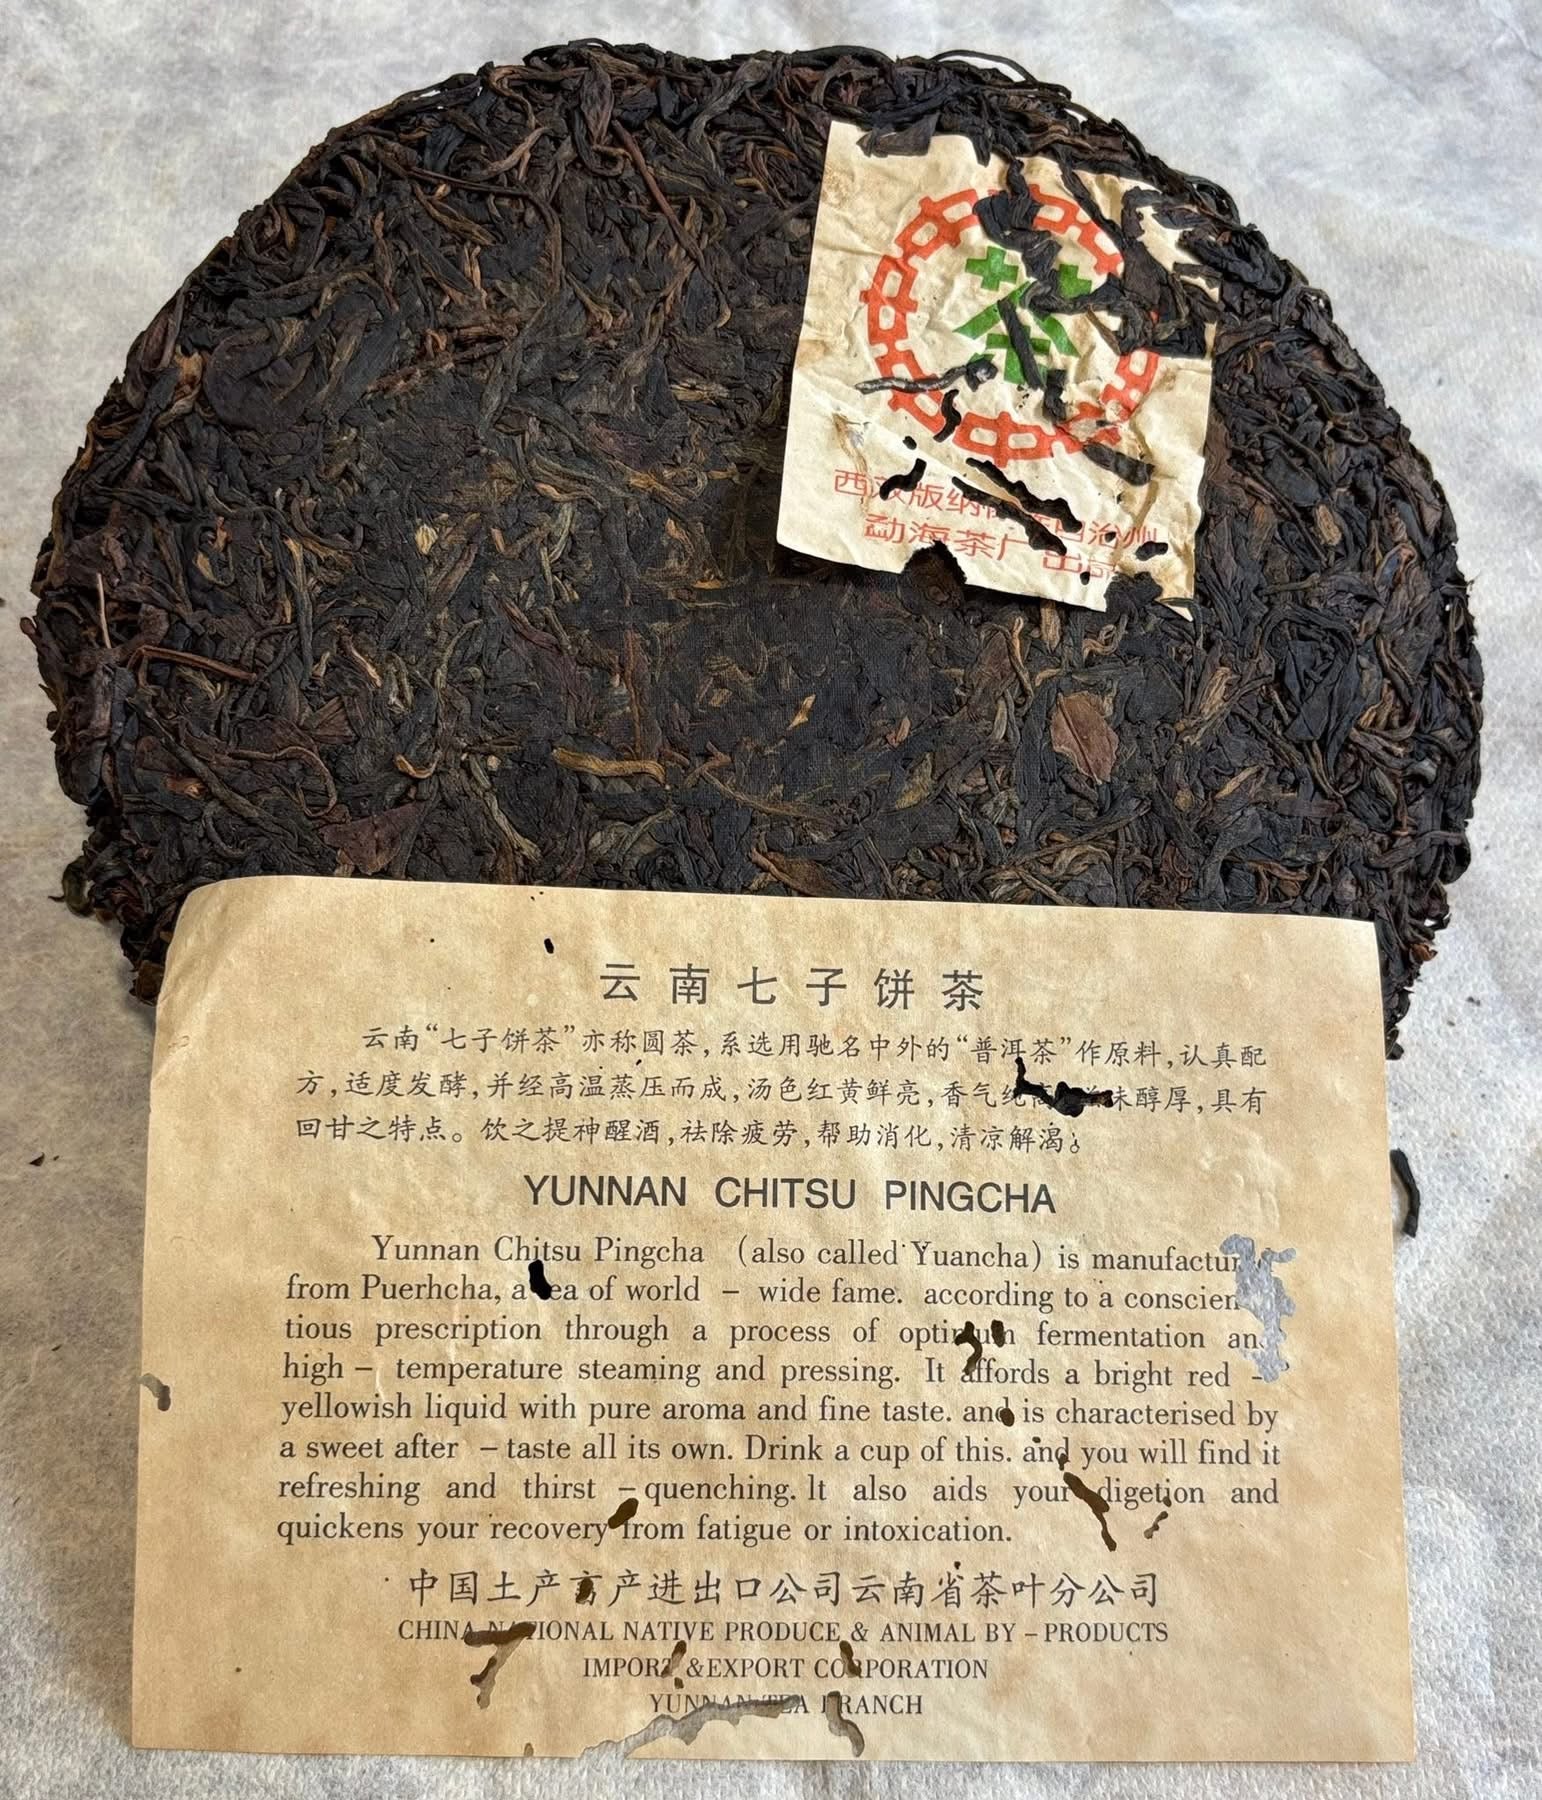 茶
中
西双版纳 治州
勐海茶厂出品
云南七子饼茶
云南“七子饼茶”亦称圆茶,系选用驰名中外的“普洱茶”作原料,认真配
方,适度发酵,并经高温蒸压而成,汤色红黄鲜亮,香气纯 味醇厚,具有
回甘之特点。饮之提神醒酒,祛除疲劳,帮助消化,清凉解渴。
YUNNAN CHITSU PINGCHA
Yunnan Chitsu Pingcha (also called Yuancha) is
from Puerhcha, a tea of world – wide fame. according to a conscien
tious prescription through a process of optimum fermentation and
high – temperature steaming and pressing. It affords a bright red –
yellowish liquid with pure aroma and fine taste. and is characterised by
a sweet after – taste all its own. Drink a cup of this. and you will find it
refreshing and thirst – quenching. It also aids your digetion and
quickens your recovery from fatigue or intoxication.
中国土产畜产进出口公司云南省茶叶分公司
CHINA NATIONAL NATIVE PRODUCE & ANIMAL BY – PRODUCTS
IMPORT &EXPORT CORPORATION
YUNNAN TEA BRANCH